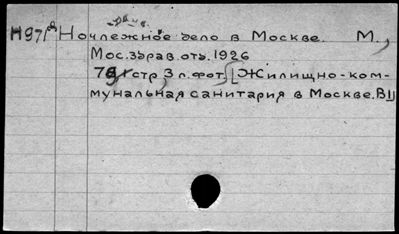 Н971 Ночлежное дело в Москве. М.,
Мос.здрав.отд. 1926
стр 3 л. фот. [Жилищно-ком-
мунальная санитария в Москве. В